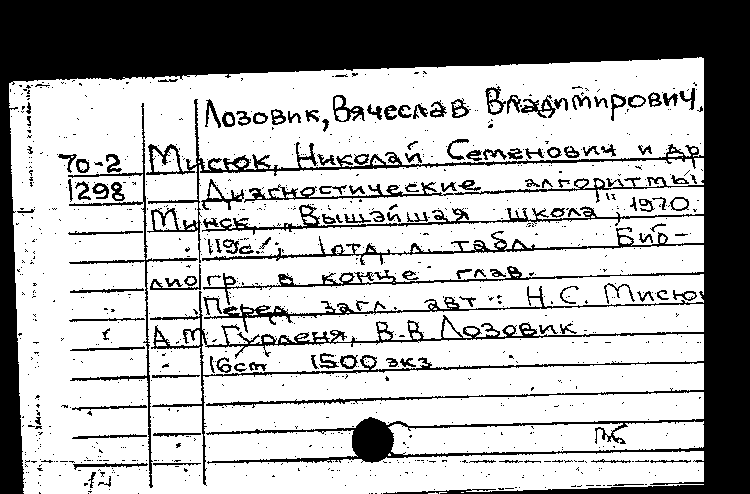 Лозовик, Вячеслав Владимирович.
70-2 Мисюк, Николай Семенович и др
1298 Диагностические алгоритмы.
Минск, „Вышэйшая школа", 1970.
119с.; 1 отд. л. табл. Биб-
лиогр. в конце глав.
Перед загл. авт.: Н.С. Мисюк
А.М. Гурленя, В.В Лозовик
16см 1500 экз
14